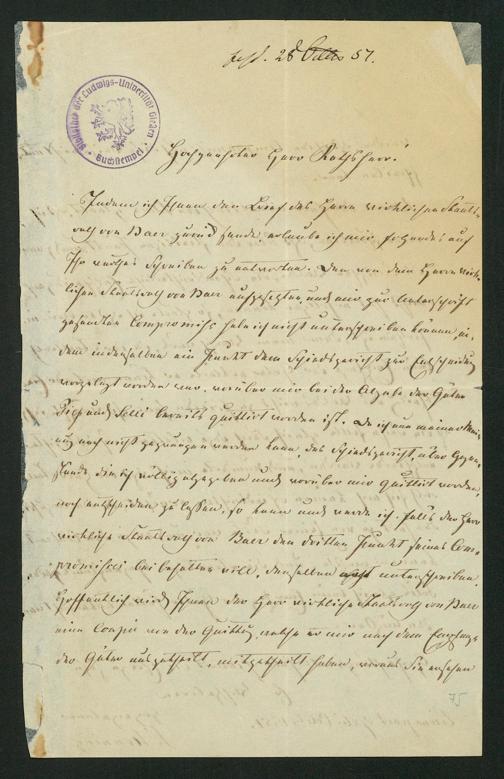 28 Octbr 57.
Bibliothek der Ludwigs-Universität Gießen
Buchstempel
Hochgeehrter Herr Rathsherr!
Indem ich Ihnen den Brief des Herrn wirklichen Staats-
rath von Baer zurück sende, erlaube ich mir folgendes auf
Ihr werthes Schreiben zu antworten. Den von dem Herrn wirk-
lichen Staatsrath von Baer aufgesetzten und mir zur Unterschrift
gesandten Compromiss habe ich nicht unterschreiben können, in-
dem in demselben ein Punkt dem Schiedsgericht zur Entscheidung
vorgelegt worden war, worüber mir bei der Abgabe der Güter
Piep und bereits quittirt worden ist. Da ich von meiner
noch nicht gezwungen werden kann, das Schiedsgericht, über Gegen-
stände, die ich völlig abgegeben und worüber mir quittirt worden,
noch entscheiden zu lassen, so kann und werde ich, falls der Herr
wirkliche Staatsrath von Baer den dritten Punkt seines Com-
promisses beibehalten will, denselben nicht unterschreiben.
Hoffentlich wird Ihnen der Herr wirkliche Staatsrath von Baer
eine Copie von der Quittung, welche er mir nach dem Empfange
der Güter ausgetheilt, mitgetheilt haben, woraus Sie ersehen
75